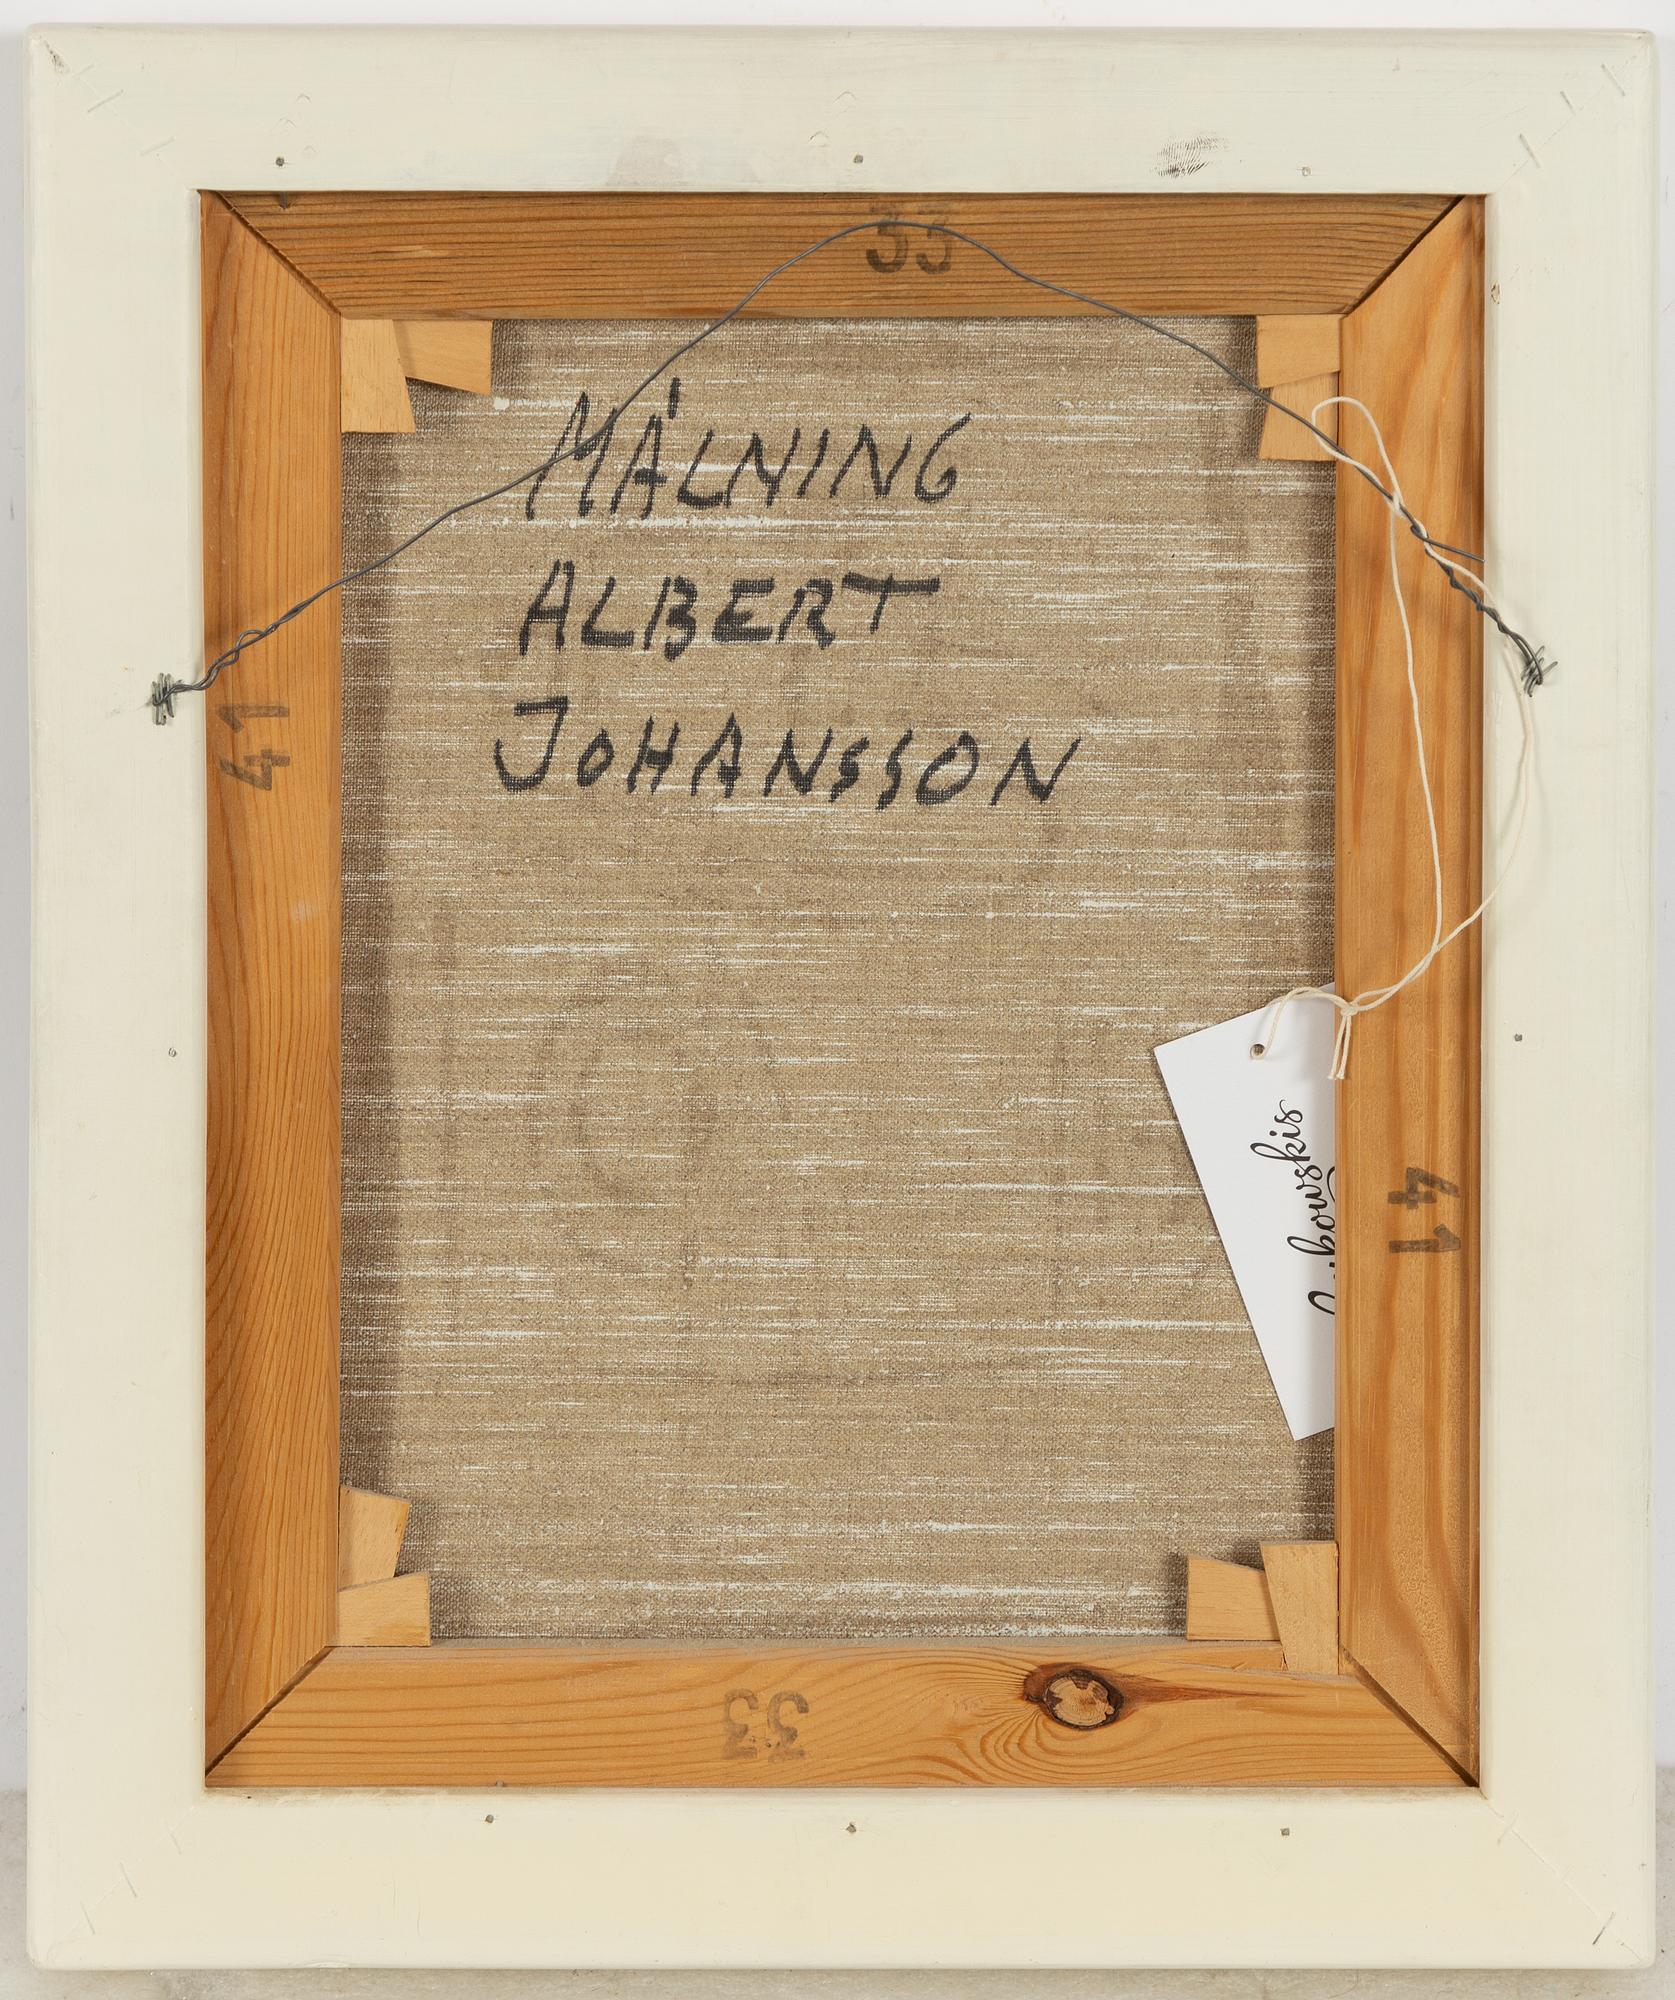 33
MÅLNING
ALBERT
JOHANSSON
41
41
33